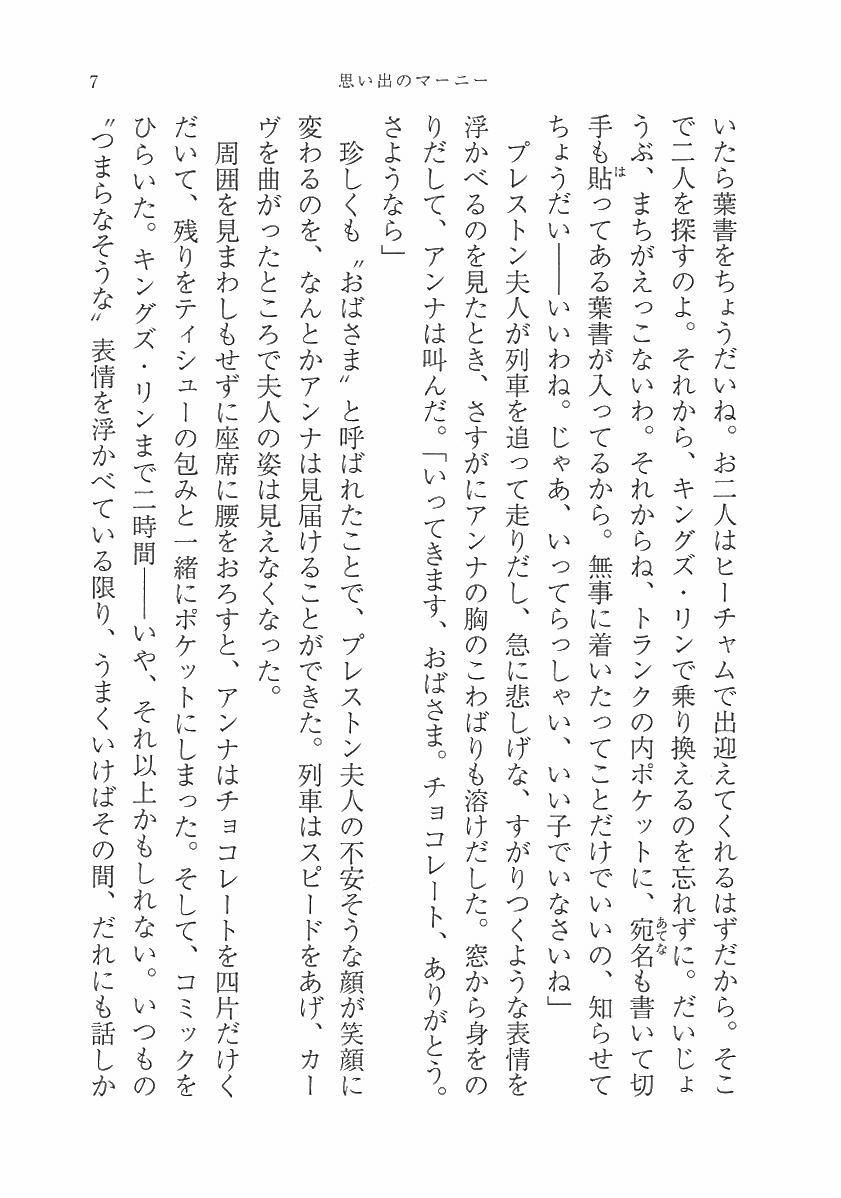 7
思い出のマーニー
いたら葉書をちょうだいね。お二人はヒーチャムで出迎えてくれるはずだから。そこ
で二人を探すのよ。それから、キングズ・リンで乗り換えるのを忘れずに。だいじょ
うぶ、まちがえっこないわ。それからね、トランクの内ポケットに、宛名も書いて切
あてな
手も貼ってある葉書が入ってるから。無事に着いたってことだけでいいの、知らせて
は
ちょうだい――いいわね。じゃあ、いってらっしゃい、いい子でいなさいね」
プレストン夫人が列車を追って走りだし、急に悲しげな、すがりつくような表情を
浮かべるのを見たとき、さすがにアンナの胸のこわばりも溶けだした。窓から身をの
りだして、アンナは叫んだ。「いってきます、おばさま。チョコレート、ありがとう。
さようなら」
珍しくも〝おばさま〟と呼ばれたことで、プレストン夫人の不安そうな顔が笑顔に
変わるのを、なんとかアンナは見届けることができた。列車はスピードをあげ、カー
ヴを曲がったところで夫人の姿は見えなくなった。
周囲を見まわしもせずに座席に腰をおろすと、アンナはチョコレートを四片だけく
だいて、残りをティシューの包みと一緒にポケットにしまった。そして、コミックを
ひらいた。キングズ・リンまで二時間――いや、それ以上かもしれない。いつもの
〝つまらなそうな〟表情を浮かべている限り、うまくいけばその間、だれにも話しか